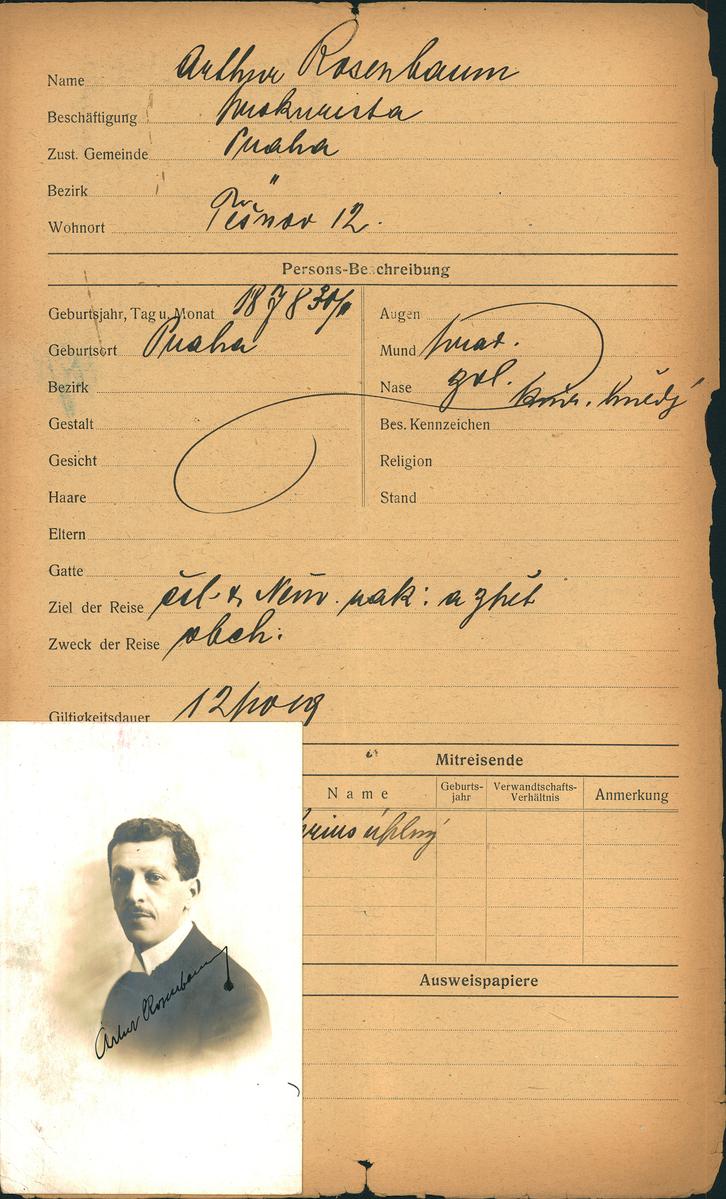 Name Arthur Rosenbaum
Beschäftigung prokurista
Zust. Gemeinde Praha
Bezirk "
Wohnort Těšnov 12.
Persons-Beschreibung
Geburtsjahr, Tag u. Monat 1878 30/
Geburtsort Praha
Bezirk
Gestalt
Gesicht
Haare
Augen
Mund
Nase
Bes. Kennzeichen
Religion
Stand
Eltern
Gatte
Ziel der Reise čsl. Něm. rak: a zpět
Zweck der Reise obch:
Giltigkeitsdauer 12
Mitreisende
Name
Geburts-jahr
Verwandtschafts-Verhältnis
Anmerkung
úplný
Ausweispapiere
Artur Rosenbaum